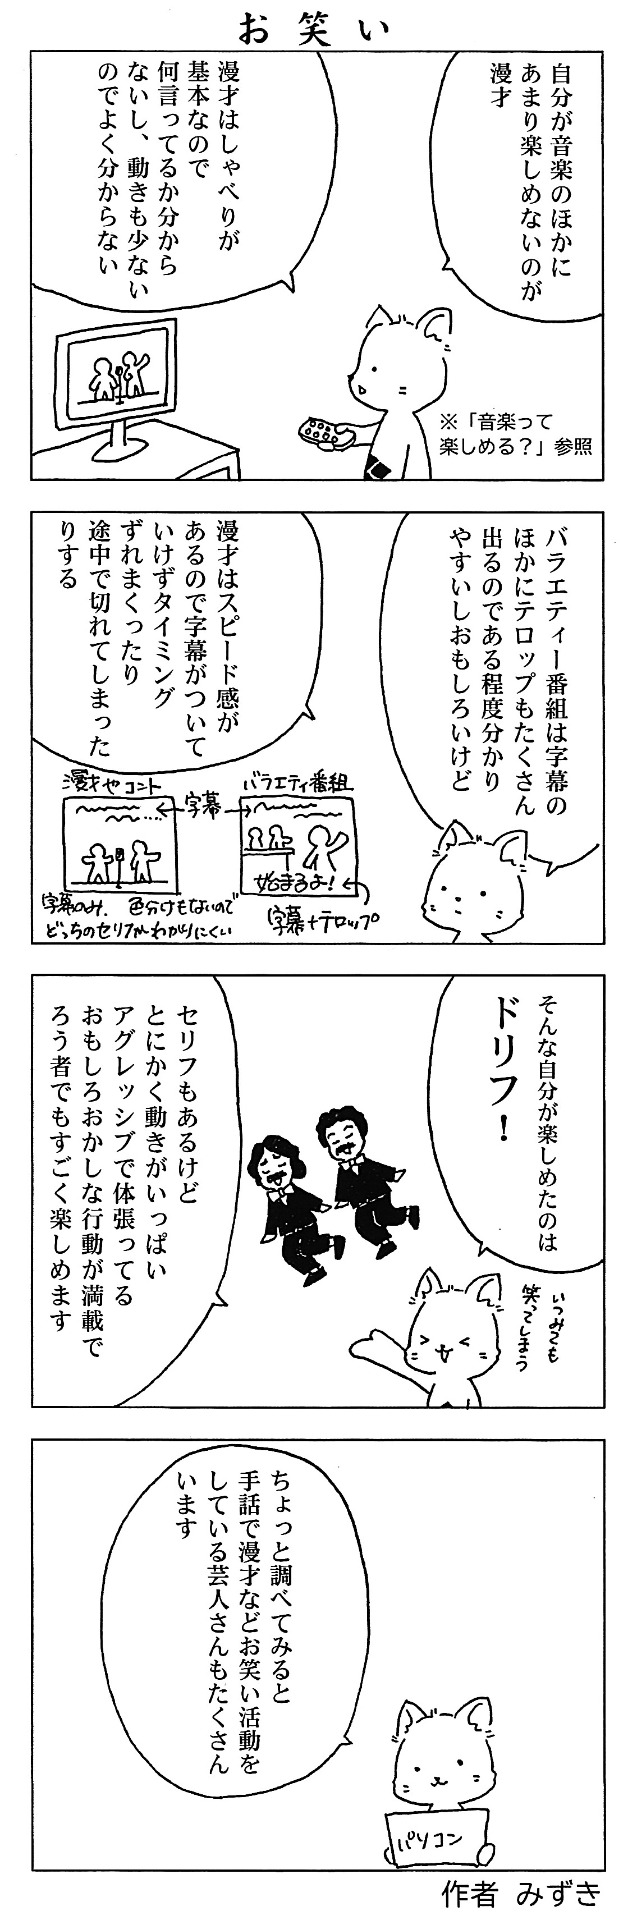 お笑い
自分が音楽のほかに
あまり楽しめないのが
漫才
漫才はしゃべりが
基本なので
何言ってるか分から
ないし、動きも少ない
のでよく分からない
※「音楽って
楽しめる？」参照
バラエティー番組は字幕の
ほかにテロップもたくさん
出るのである程度分かり
やすいしおもしろいけど
漫才はスピード感が
あるので字幕がついて
いけずタイミング
ずれまくったり
途中で切れてしまった
りする
バラエティ番組
漫才やコント
字幕
始まるよ！
字幕+テロップ
字幕のみ、色分けもないので
どっちのセリフかわかりにくい
そんな自分が楽しめたのは
ドリフ！
いつみても
笑ってしまう
セリフもあるけど
とにかく動きがいっぱい
アグレッシブで体張ってる
おもしろおかしな行動が満載で
ろう者でもすごく楽しめます
ちょっと調べてみると
手話で漫才などお笑い活動を
している芸人さんもたくさん
います
パソコン
作者 みずき